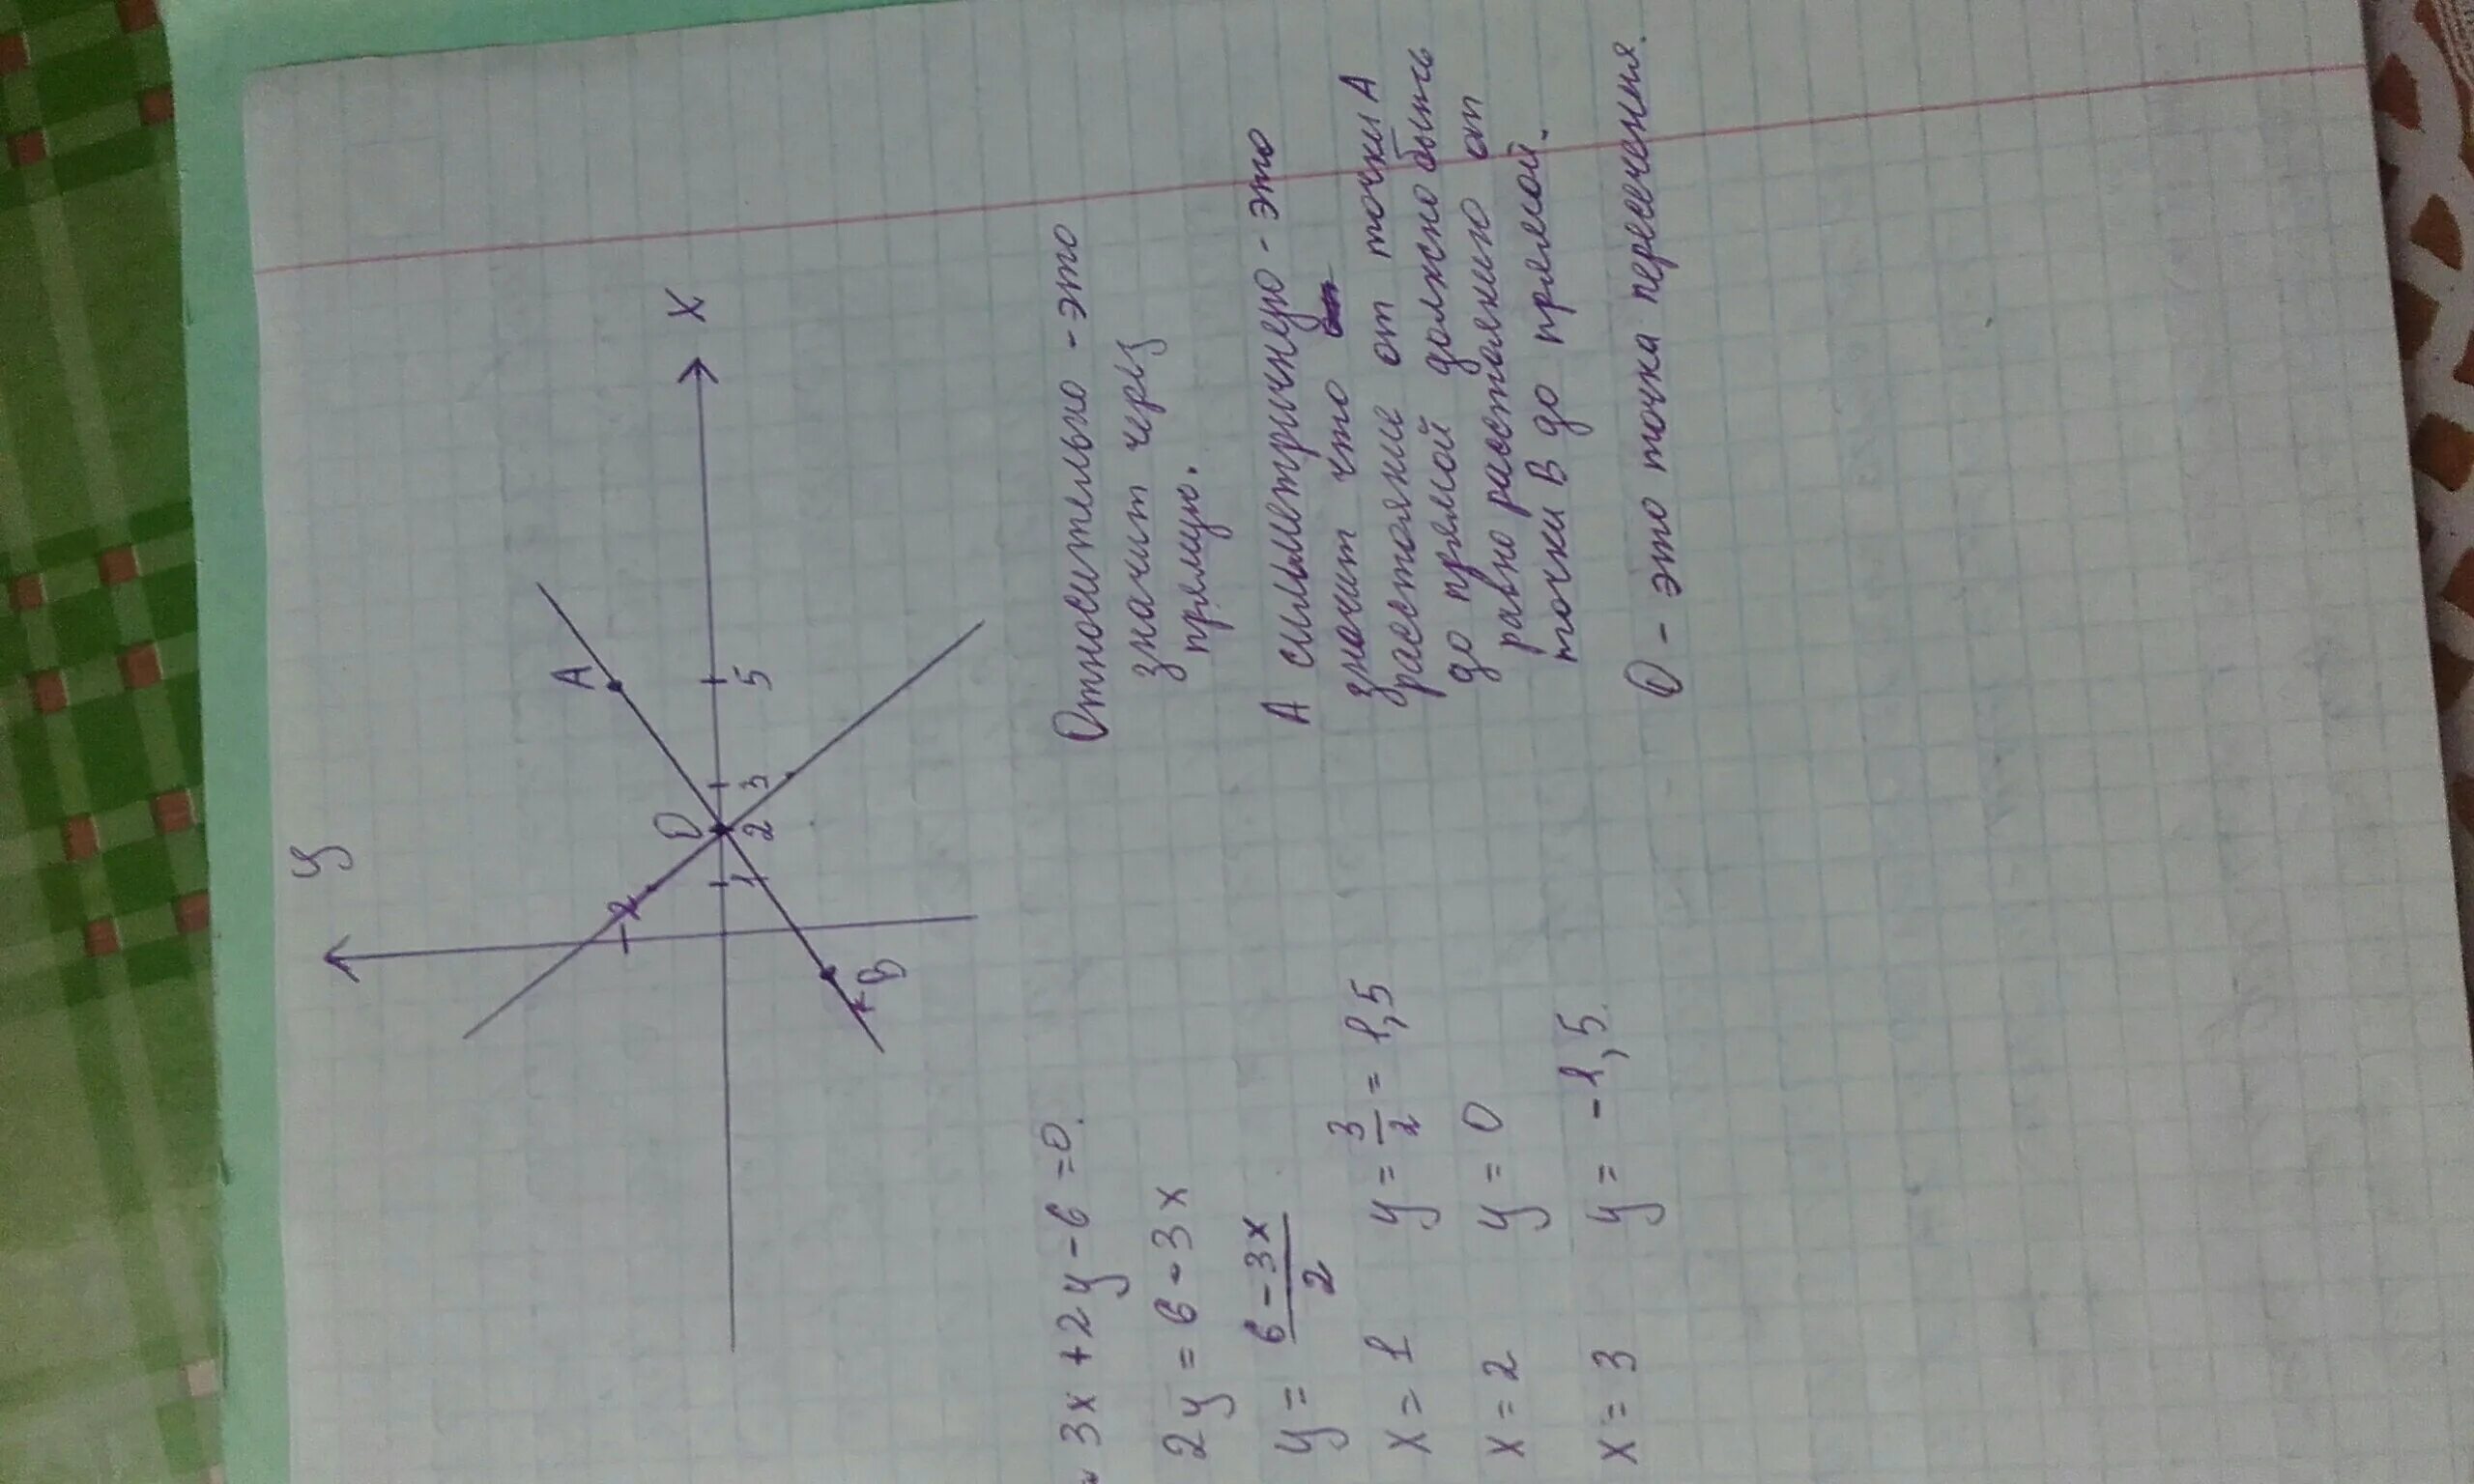 y
X
A
O
2
1
2
3
5
B
3x + 2y - 6 = 0.
2y = 6 - 3x
y = \frac{6 - 3x}{2}
x = 1 y = \frac{3}{2} = 1,5
x = 2 y = 0
x = 3 y = -1,5.
Относительно - это
значит через
прямую.
А симметричную - это
значит что
расстояние от точки А
до прямой должно быть
равно расстоянию от
точки В до прямой.
О - это точка пересечения.